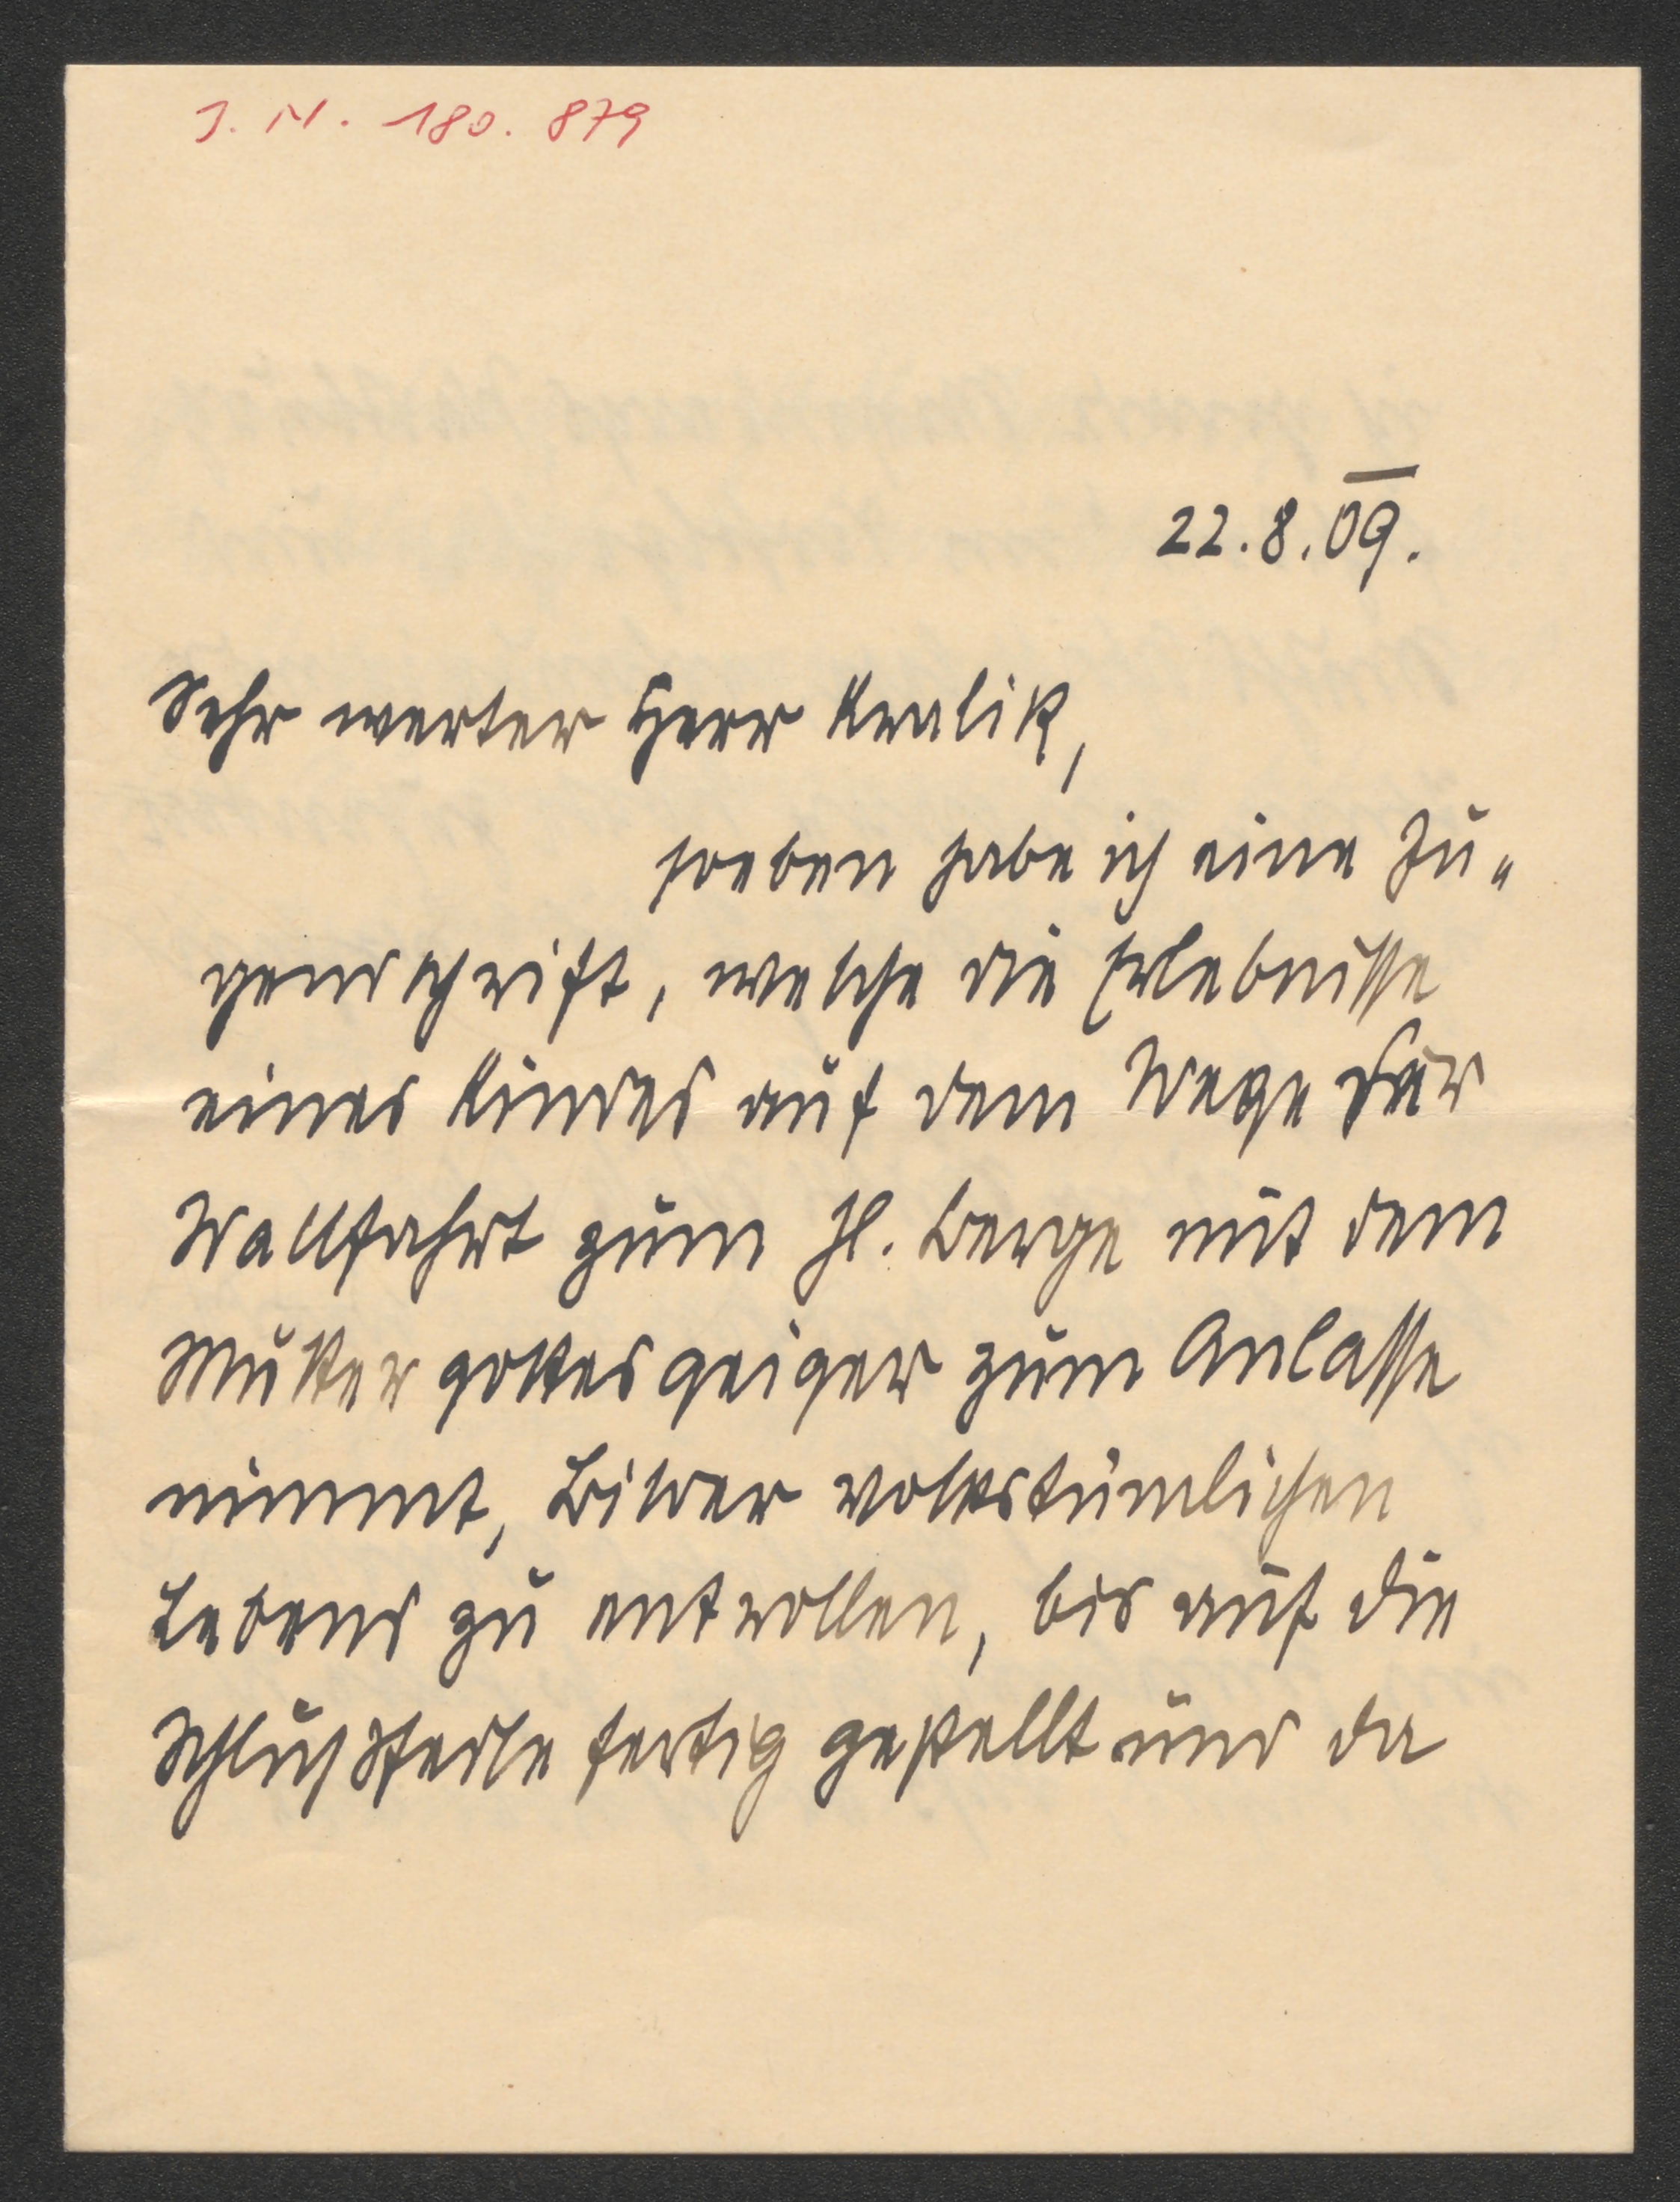 J. N. 180.879
22.8.09.
Sehr werter Herr Kralik,
soeben habe ich eine Ju-
gendschrift, welche die Erlebnisse
eines Kindes auf dem Wege der
Wallfahrt zum hl. Berge mit dem
Muttergottesgeiger zum Anlasse
nimmt, Bilder volkstümlichen
Lebens zu entrollen, bis auf die
Schlußfeile fertig gestellt und da